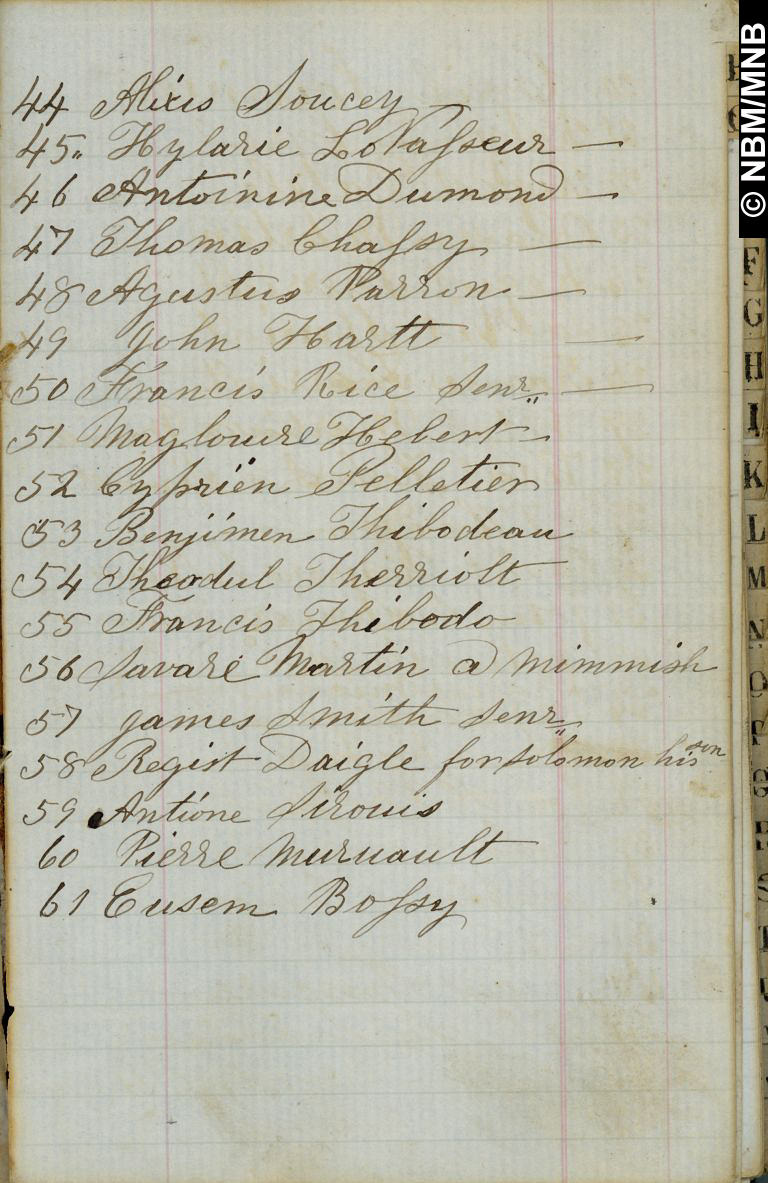 44 Alixis Soucey —
45„ Hylarie LoVasseur —
46 Antoinine Dumond —
47 Thomas Chassy —
48 Agustus Parron —
49 John Hartt —
50 Francis Rice Senr„ —
51 Maglouire Hebert —
52 Cyprien Pelletier
53 Benjimen Thibodeau
54 Theodul Therriolt
55 Francis Thibodo
56 Savare Martin a mimmish
57 James Smith Senr„
58 Regist Daigle for Solomon his son
59 Antione Sirouis
60 Pierre Muruault
61 Eusem Bossy
© NBM/MNB
F
G
H
I
K
L
M
N
O